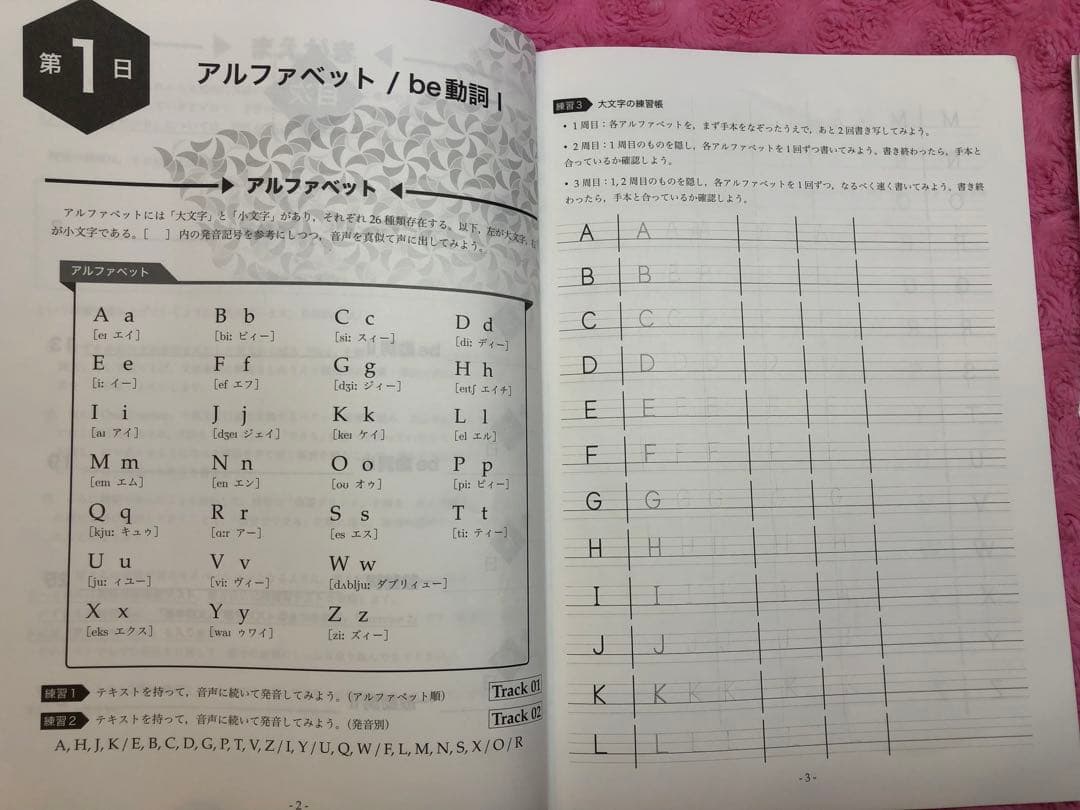 第1日
アルファベット / be動詞 I
アルファベット
アルファベットには「大文字」と「小文字」があり，それぞれ26種類存在する。以下，左が大文字，右
が小文字である。[　]内の発音記号を参考にしつつ，音声を真似て声に出してみよう。
アルファベット
A a B b C c D d
[eɪ エイ] [biː ビィー] [siː スィー] [diː ディー]
E e F f G g H h
[iː イー] [ef エフ] [dʒiː ジィー] [eɪtʃ エイチ]
I i J j K k L l
[aɪ アイ] [dʒeɪ ジェイ] [keɪ ケイ] [el エル]
M m N n O o P p
[em エム] [en エン] [oʊ オゥ] [piː ピィー]
Q q R r S s T t
[kjuː キュゥ] [ɑːr アー] [es エス] [tiː ティー]
U u V v W w
[juː ィユー] [viː ヴィー] [dʌbljuː ダブリィュー]
X x Y y Z z
[eks エクス] [waɪ ゥワイ] [ziː ズィー]
練習1 テキストを持って，音声に続いて発音してみよう。（アルファベット順） Track 01
練習2 テキストを持って，音声に続いて発音してみよう。（発音別） Track 02
A, H, J, K / E, B, C, D, G, P, T, V, Z / I, Y / U, Q, W / F, L, M, N, S, X / O / R
- 2 -
練習3 大文字の練習帳
• 1周目：各アルファベットを，まず手本をなぞったうえで，あと2回書き写してみよう。
• 2周目：1周目のものを隠し，各アルファベットを1回ずつ書いてみよう。書き終わったら，手本と
合っているか確認しよう。
• 3周目：1, 2周目のものを隠し，各アルファベットを1回ずつ，なるべく速く書いてみよう。書き終
わったら，手本と合っているか確認しよう。
A A
B B
C C
D D
E E
F F
G G
H H
I I
J J
K K
L L
- 3 -